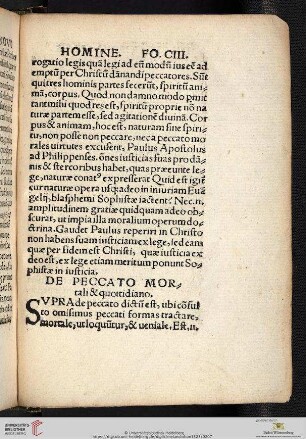 HOMINE. FO. CIII.
rogatio legis quã legi ad eũ modũ ius eẽ ad
emptũ per Christũ dãnandi peccatores. Sũt
qui tres hominis partes fecerũt, spiritũ ani-
mã, corpus. Quod non damno modo ꝑmit
tant mihi quod res est, spiritũ proprie nõ na
turæ partem esse, sed agitationẽ diuinã. Cor
pus & animam, hoc est, naturam sine spiri-
tu, non posse non peccare, nec a peccato mo
rales uirtutes excusent. Paulus Apostolus
ad Philippenses. ões iusticias suas pro dã-
nis & stercoribus habet, quas præeunte le-
ge, naturæ conatꝰ expresserat Quid est igit
cur naturæ opera usqꝫ adeo in iniuriam Euã
gelij, blasphemi Sophistæ iactent? Nec.n.
amplitudinem gratiæ quidquam adeo ob-
scurat, ut impia illa moralium operum do-
ctrina. Gaudet Paulus reperiri in Christo
non habens suam iusticiam ex lege, sed eam
quæ per fidem est Christi, quæ iusticia ex
deo est, ex lege etiam meritum ponunt So-
phistæ in iusticia.
DE PECCATO MOR-
tali & quotidiano.
SVPRA de peccato dictũ est, ubi cõsul
to omisimus peccati formas tractare,
mortale, ut loquũtur, & ueniale. Est.n.
UNIVERSITÄTS-
BIBLIOTHEK
HEIDELBERG